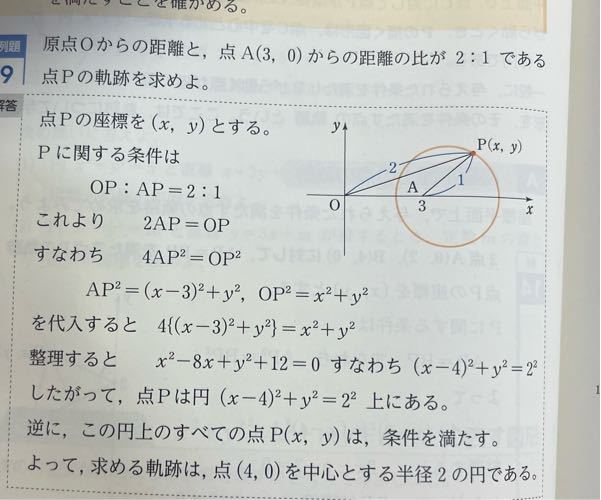 を満たすことを確かめる。
例題
9
原点Oからの距離と，点A(3, 0)からの距離の比が 2：1 である
点Pの軌跡を求めよ。
解答
点Pの座標を(x, y)とする。
Pに関する条件は
OP：AP=2：1
これより 2AP=OP
すなわち 4AP²=OP²
AP²=(x−3)²+y², OP²=x²+y²
を代入すると 4{(x−3)²+y²}=x²+y²
整理すると x²−8x+y²+12=0 すなわち (x−4)²+y²=2²
したがって，点Pは円 (x−4)²+y²=2² 上にある。
逆に，この円上のすべての点P(x, y)は，条件を満たす。
よって，求める軌跡は，点(4, 0)を中心とする半径2の円である。
y
P(x, y)
2
A
1
O
3
x
1